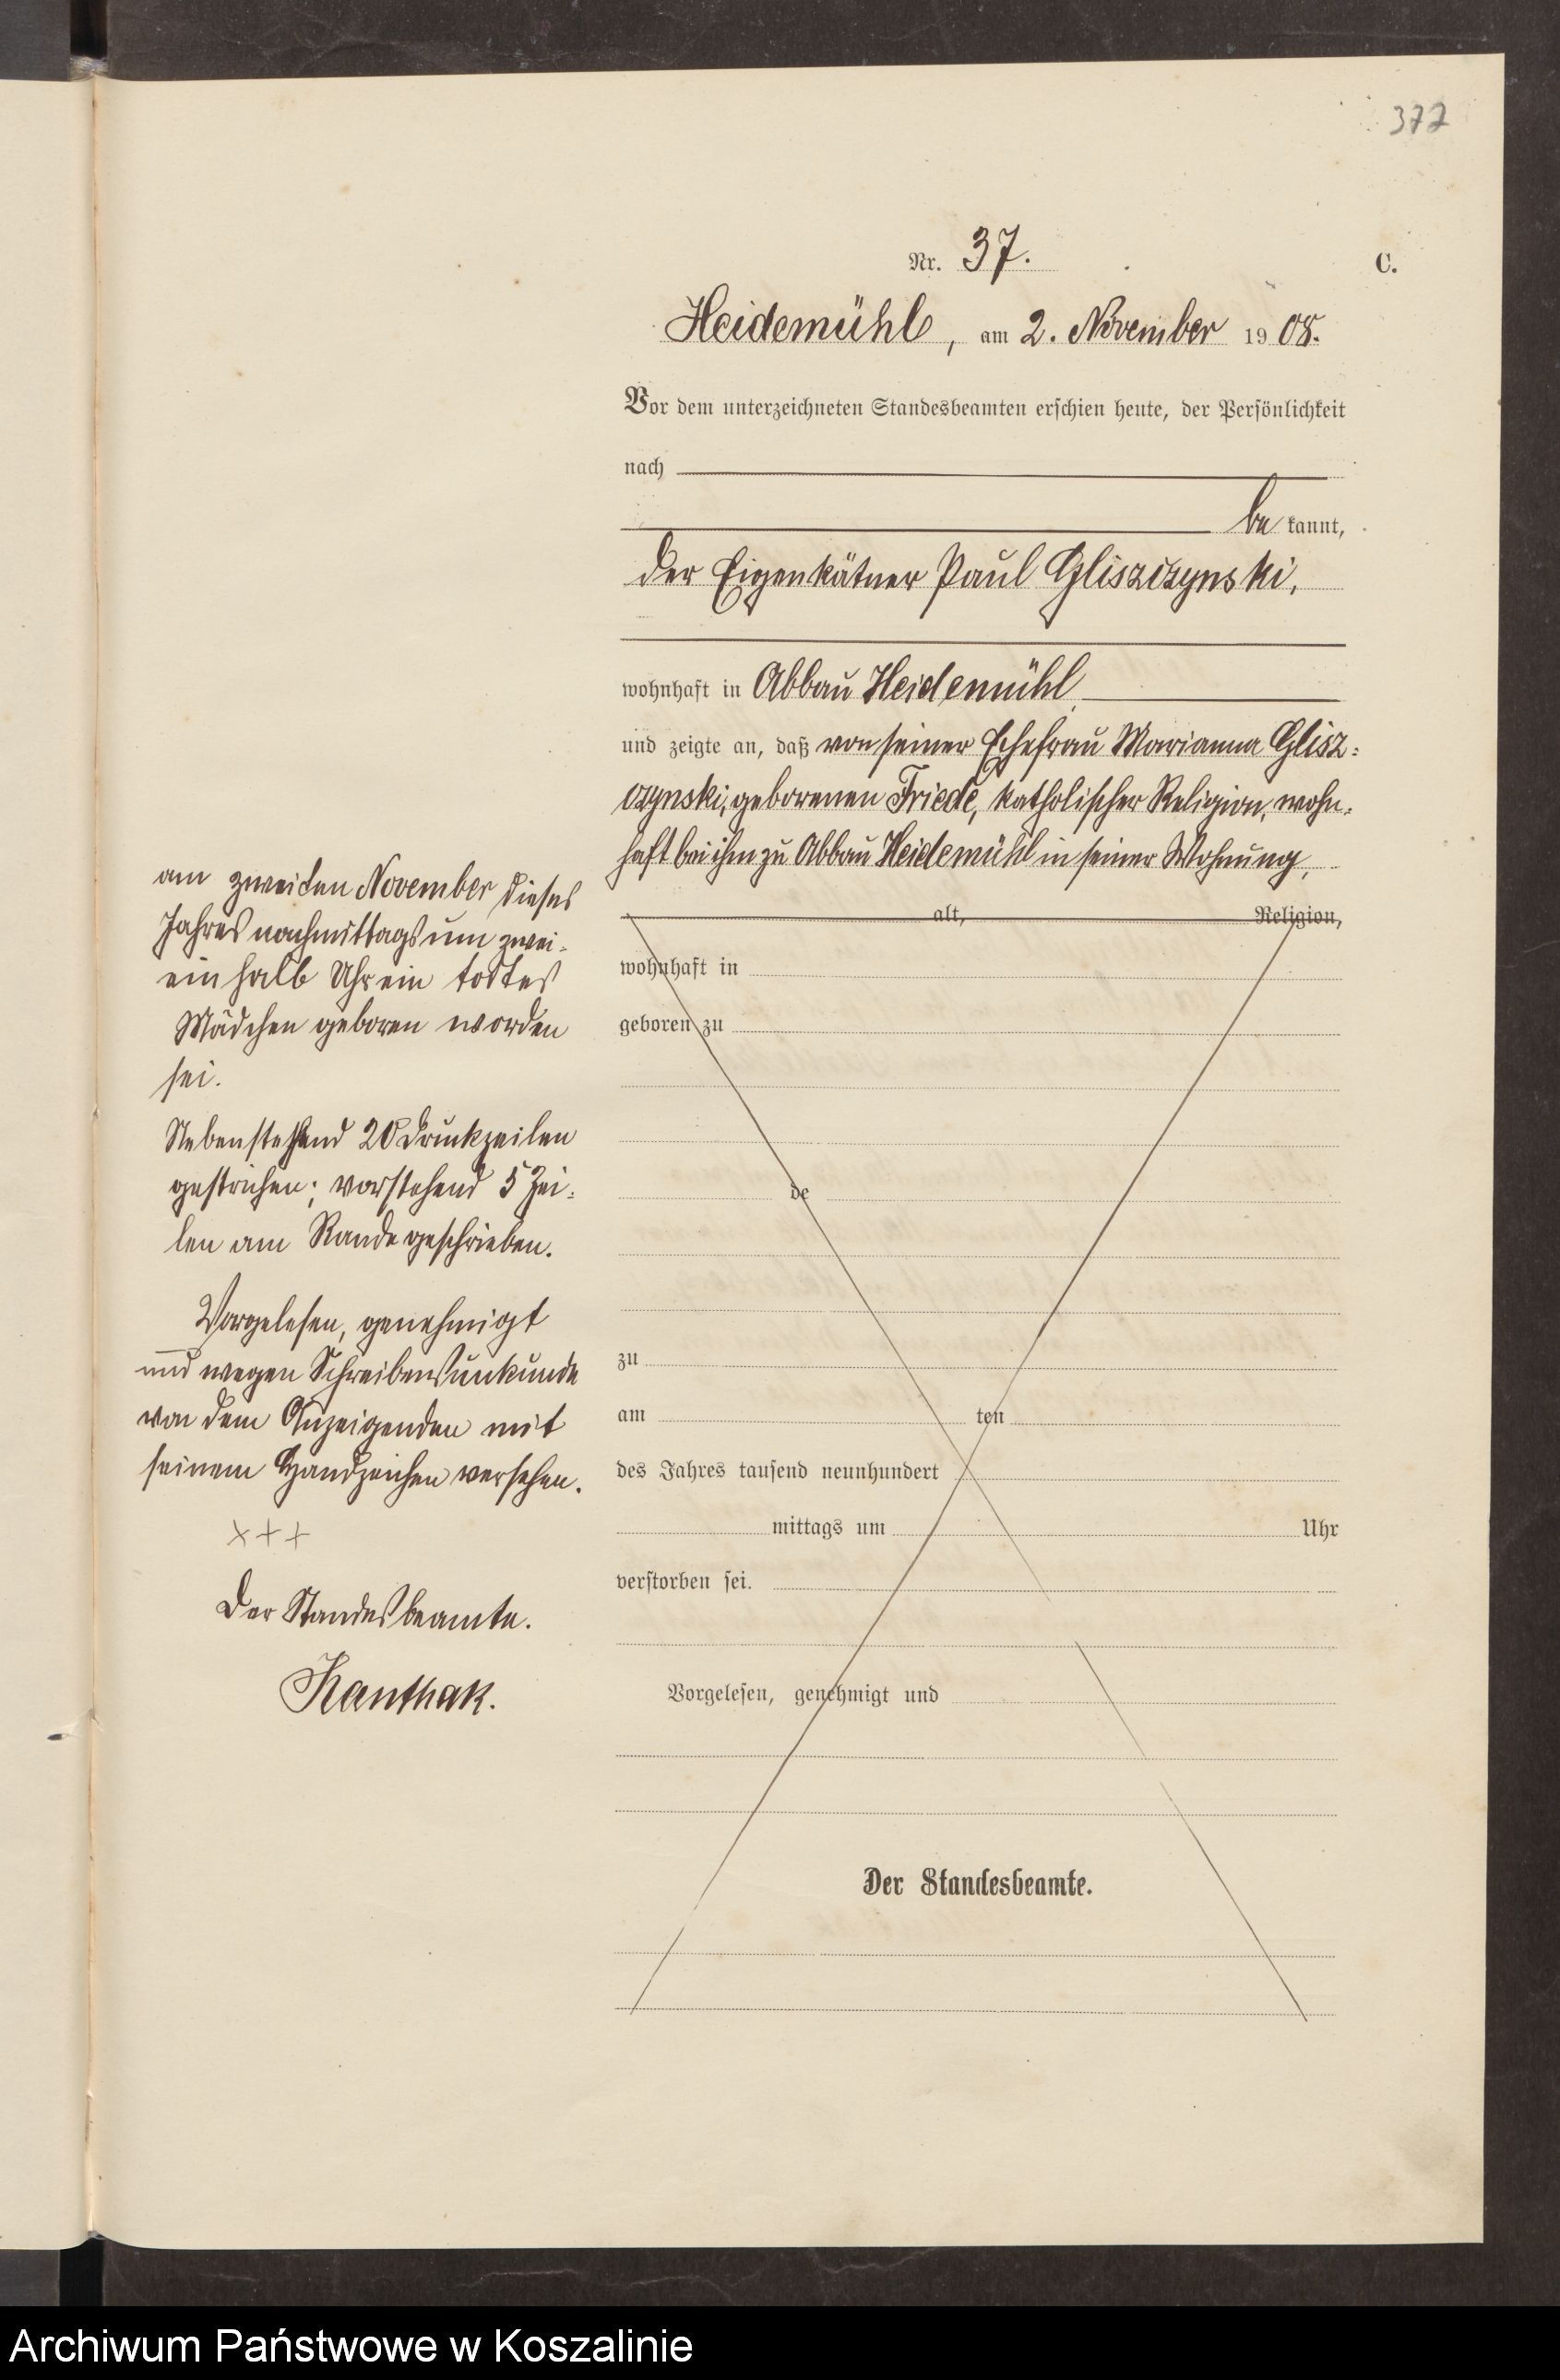 377
Nr. 37.
C.
Heidemühl, am 2. November 1908.
Vor dem unterzeichneten Standesbeamten erschien heute, der Persönlichkeit
nach
be kannt,
der Eigenkätner Paul Gliszczynski,
wohnhaft in Abbau Heidemühl,
und zeigte an, daß von seiner Ehefrau Marianna Glisz-
czynski, geborenen Friede, katholischer Religion, wohn-
haft bei ihm zu Abbau Heidemühl in seiner Wohnung,
am zweiten November dieses
Jahres nachmittags um zwei-
einhalb Uhr ein todtes
Mädchen geboren worden
sei.
Nebenstehend 20 Druckzeilen
gestrichen; vorstehend 5 Zei-
len am Rande geschrieben.
Vorgelesen, genehmigt
und wegen Schreibensunkunde
von dem Anzeigenden mit
seinem Handzeichen versehen.
+++
Der Standesbeamte.
Kanthak.
alt, Religion,
wohnhaft in
geboren zu
de
zu
am ten
des Jahres tausend neunhundert
mittags um Uhr
verstorben sei.
Vorgelesen, genehmigt und
Der Standesbeamte.
Archiwum Państwowe w Koszalinie